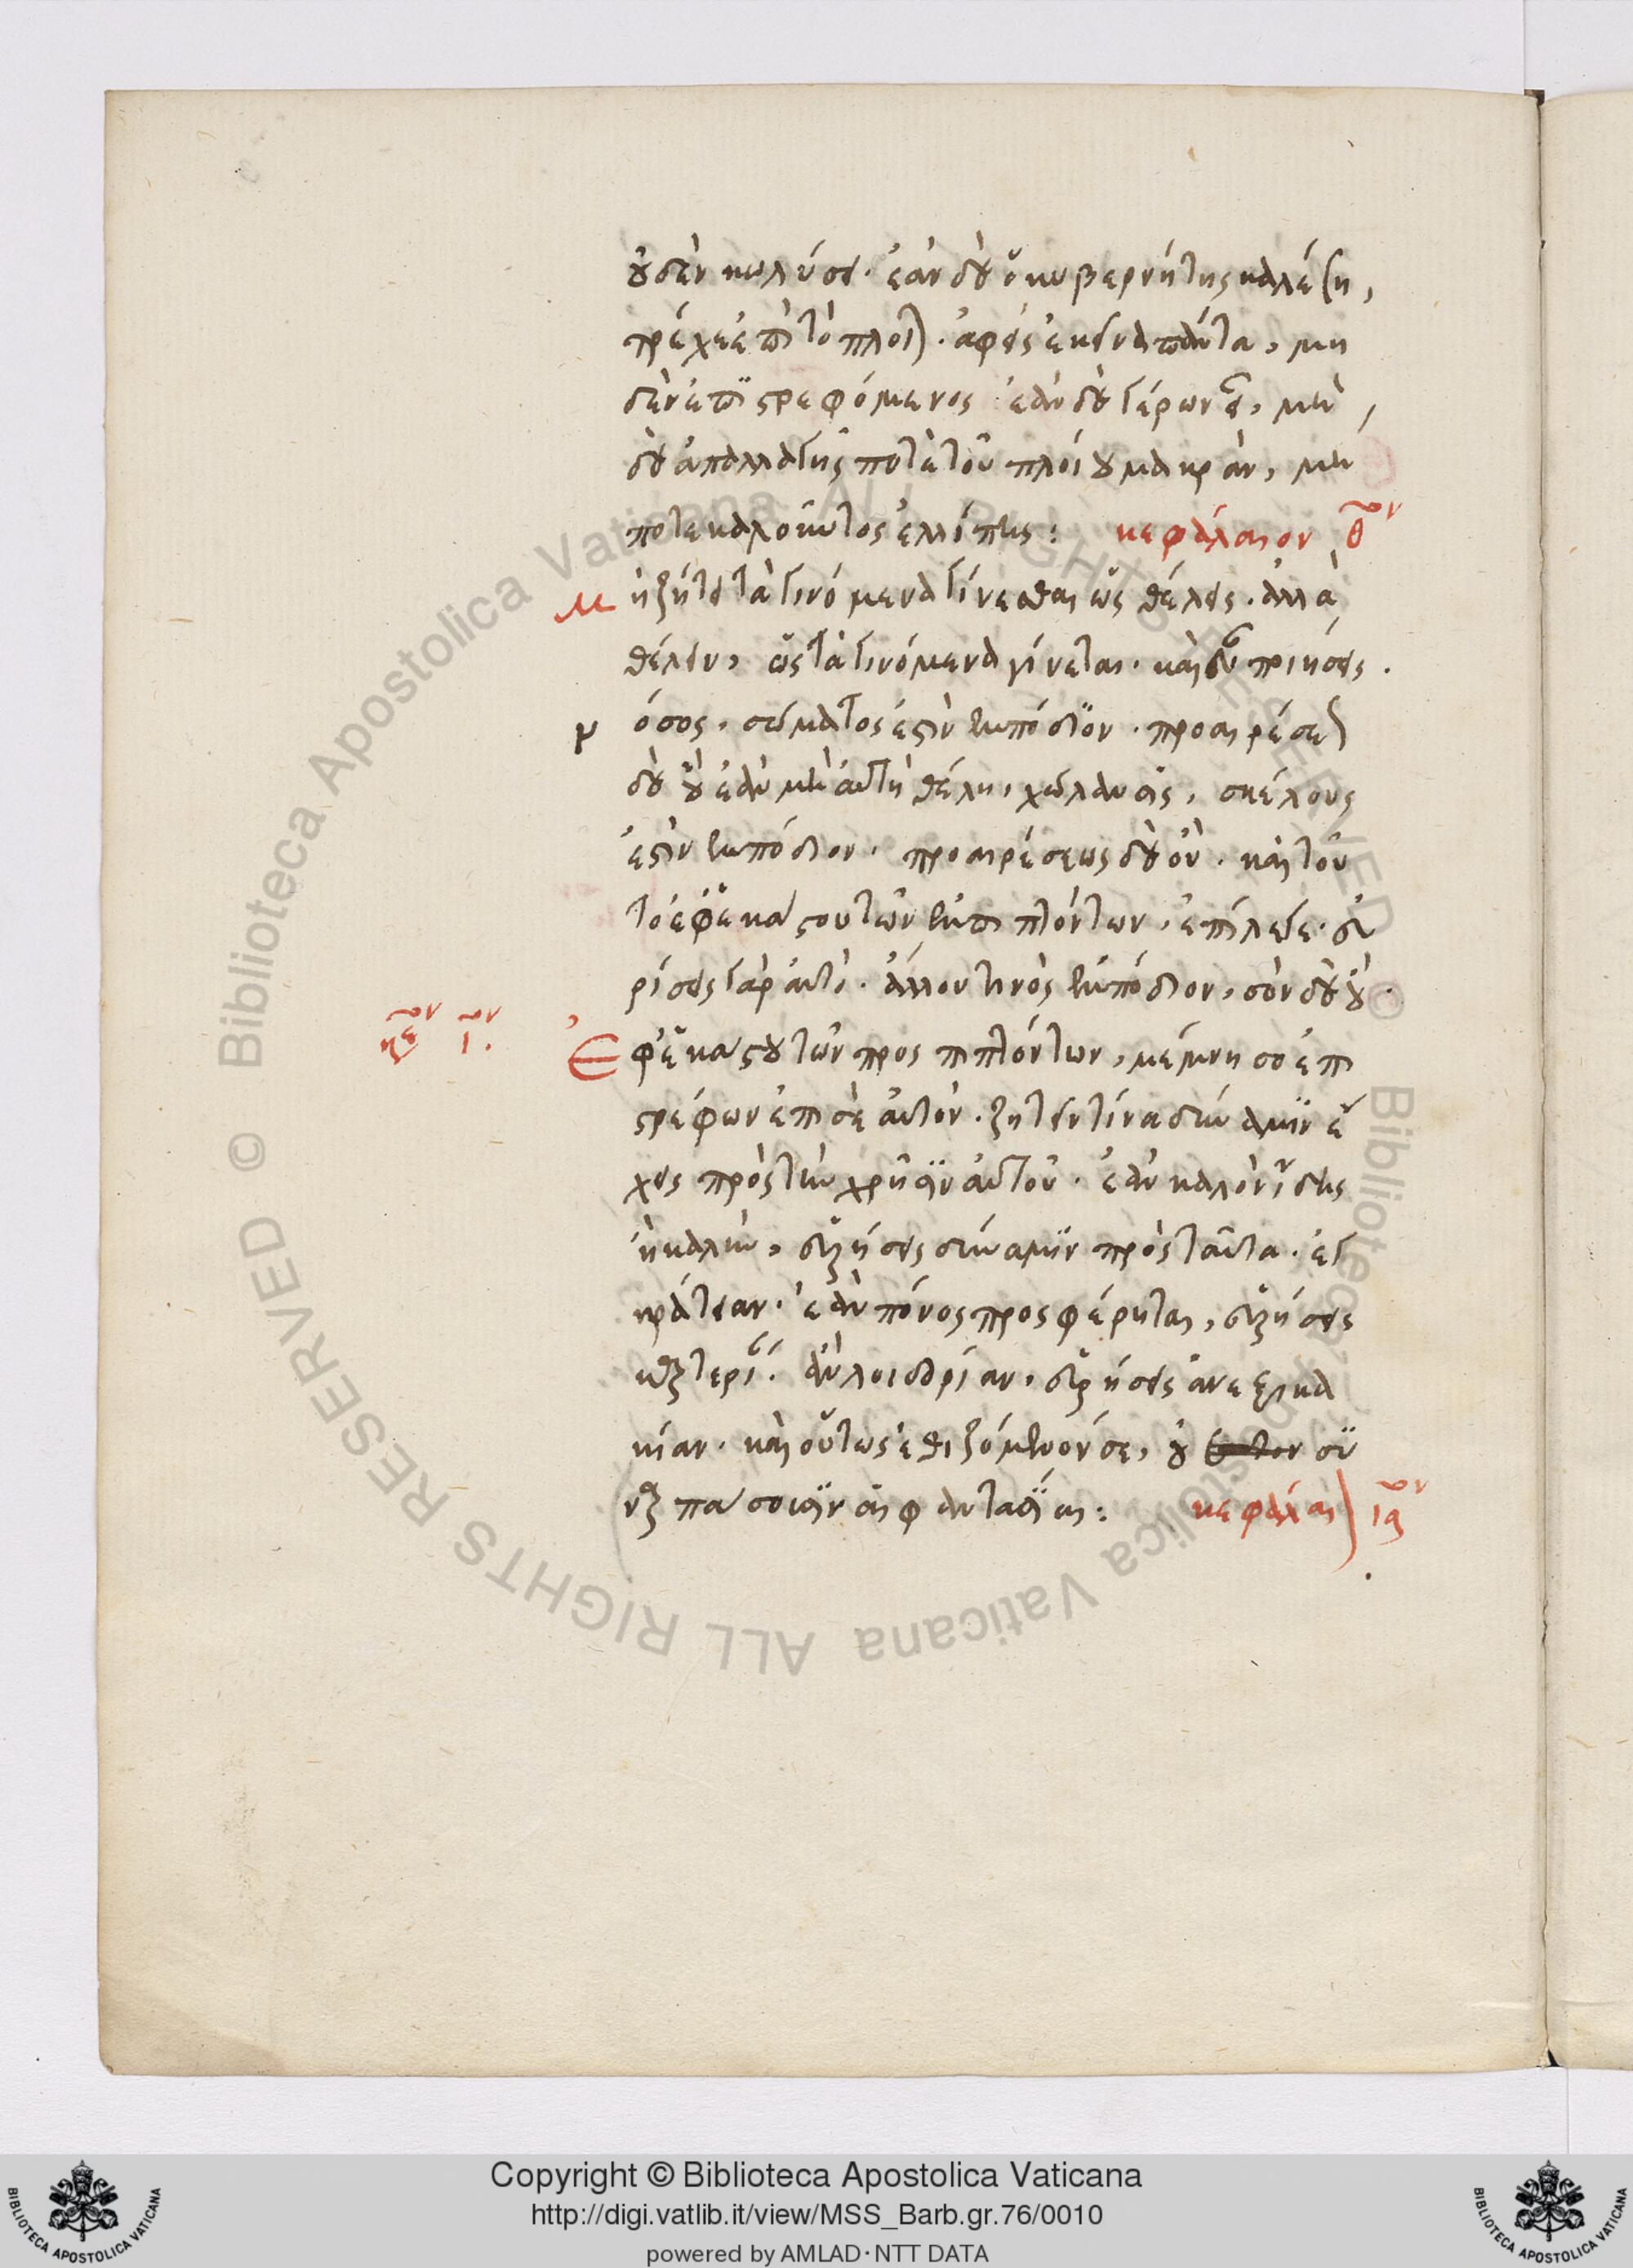 οὐδὲν κωλύσει. ἐὰν δὲ ὁ κυβερνήτης καλέση,
τρέχε ἐπὶ τὸ πλοῖον. ἀφεὶς ἐκεῖνα πάντα, μη
δὲν ἐπιστρεφόμενος ἐὰν δὲ γέρων ἦς, μὴ
δὲ ἀπαλλαγῆς ποτὲ τοῦ πλοίου μακρὰν, μή
ποτε καλοῦντος ἐλλίπης: κεφάλαιον θον
Μὴ ζήτει τὰ γινόμενα γίνεσθαι ὡς θέλεις. ἀλλὰ
θέλειν, ὡς τὰ γινόμενα γίνεται. καὶ εὖ ποιήσεις.
νόσος, σώματός ἐστιν ἐμπόδιον. προαιρέσεως
δὲ οὐ ἐὰν μὴ αὐτὴ θέλη, χώλανσις, σκέλους
ἐστὶν ἐμπόδιον. προαιρέσεως δὲ οὐ. καὶ τοῦ
το ἐφ' ἑκάστου τῶν ἐμπιπτόντων, ἐπίλεγε. εὑ
ρήσεις γὰρ αὐτὸ. ἄλλου τινὸς ἐμπόδιον, σὸν δὲ οὐ.
κεον ιον. Ἐφ' ἑκάστου τῶν προσπιπτόντων, μέμνησο ἐπι
στρέφων ἐπὶ σεαυτὸν. ζητεῖν τίνα δύναμιν ἔ
χεις πρὸς τὴν χρῆσιν αὐτοῦ. ἐὰν καλὸν ἴδης
ἢ καλὴν, εὑρήσεις δύναμιν πρὸς ταῦτα. ἐγ
κράτειαν. ἐὰν πόνος προσφέρηται, εὑρήσεις
καρτερίαν. ἂν λοιδορίαν, εὑρήσεις ἀνεξικα
κίαν. καὶ οὕτως ἐθιζόμενόν σε, οὐ συ
ναρπάσουσιν αἱ φαντασίαι: κεφάλαιον ιαον
Copyright © Biblioteca Apostolica Vaticana
http://digi.vatlib.it/view/MSS_Barb.gr.76/0010
powered by AMLAD·NTT DATA
© Biblioteca Apostolica Vaticana ALL RIGHTS RESERVED © Biblioteca Apostolica Vaticana ALL RIGHTS RESERVED
BIBLIOTECA APOSTOLICA VATICANA
BIBLIOTECA APOSTOLICA VATICANA